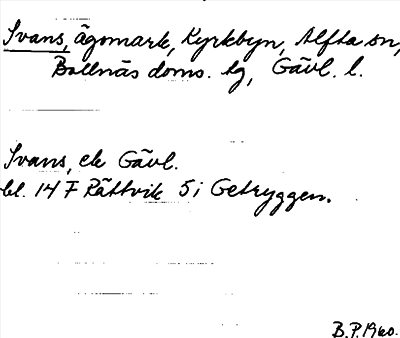 Svans, ägomark, Kyrkbyn, Alfta sn,
Bollnäs doms. tg, Gävl. l.
Svans, ek Gävl.
bl. 14 F Rättvik 5 i Getryggen.
B.P. 1960.